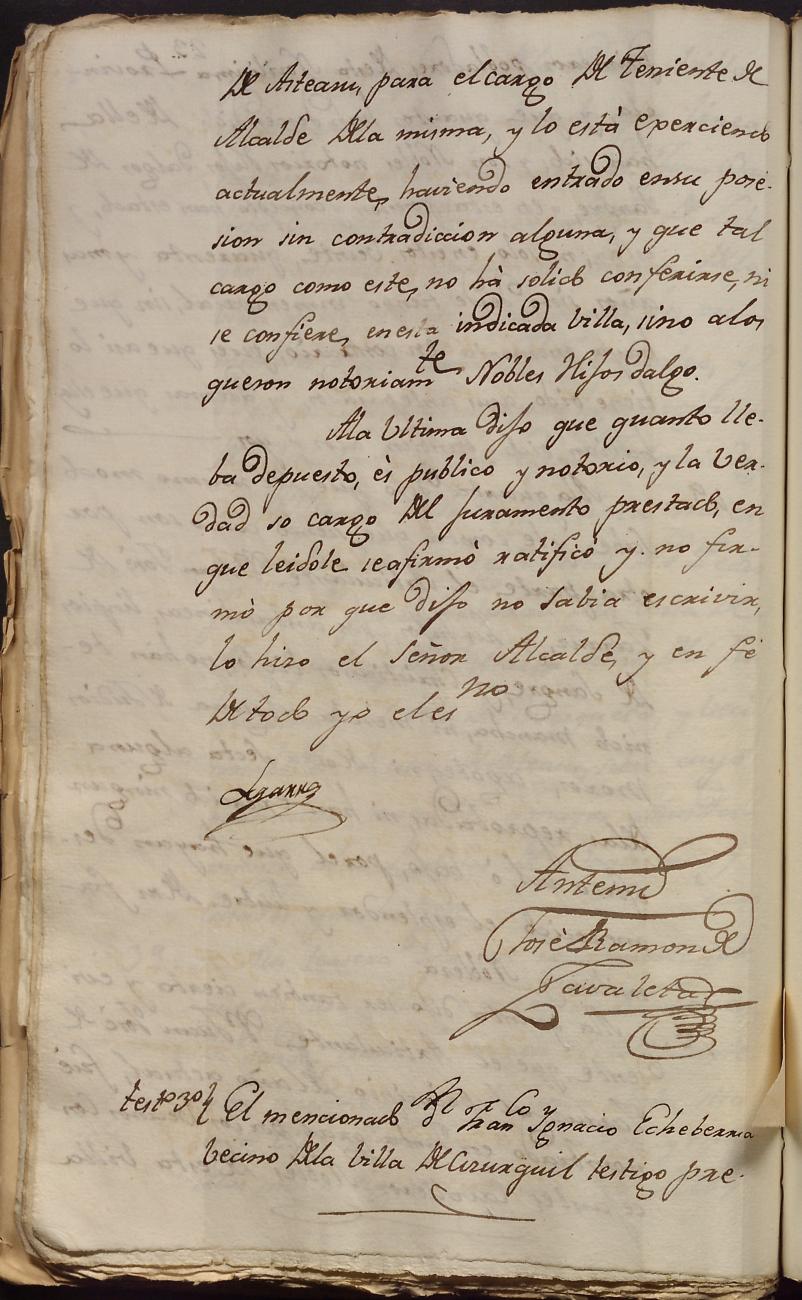 De Asteasu, para el cargo Del Teniente de
Alcalde Dela misma, y lo està exerciendo
actualmente, haviendo entrado ensu pose-
sion sin contradiccion alguna, y que tal
cargo como este, no hà solido conferirse, ni
se confiere, enesta indicada Villa, sino alos
queson notoriamte Nobles Hijos dalgo.
Ala Ultima dijo que quanto lle-
ba depuesto, ès publico y notorio, y la Ver-
dad so cargo Del Juramento prestado, en
que leidole seafirmò ratificó y no fir-
mò por que dijo no Sabia escrivir,
lo hizo el Señor Alcalde, y en fé
De todo yo el esno
Antemi
Josè Ramon de
Zavaleta
testo 3o El mencionado Dn Franco Ygnacio Echeberria
vecino Dela Villa De Cizurquil testigo pre-